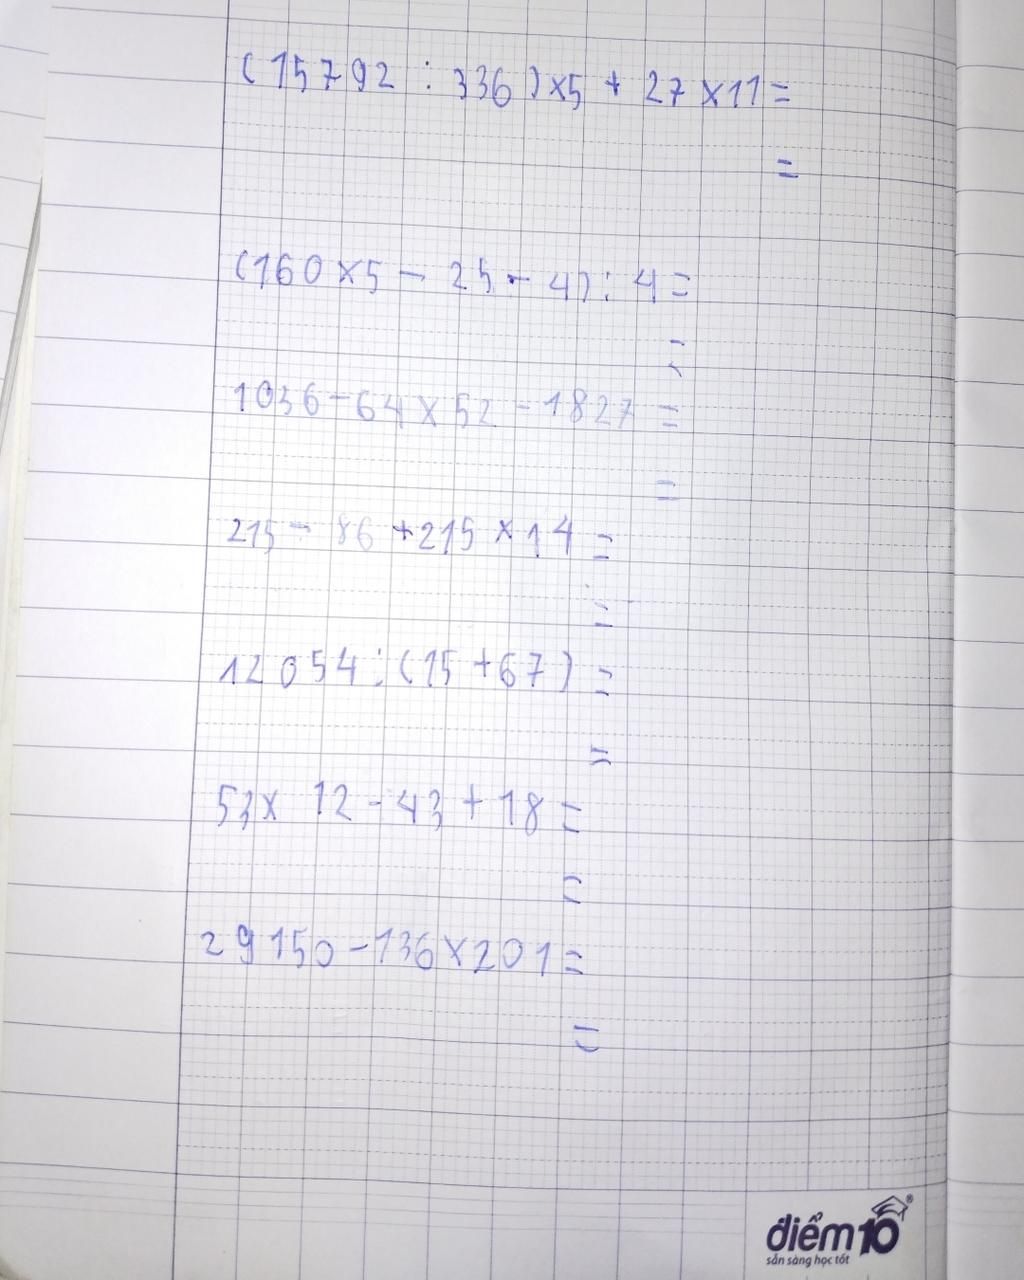 (15792 : 336) x 5 + 27 x 11 =
=
(160 x 5 - 25 - 4) : 4 =
=
1036 - 64 x 52 - 1827 =
=
215 - 86 + 215 x 14 =
=
12054 : (15 + 67) =
=
53 x 12 - 43 + 18 =
=
29150 - 136 x 201 =
=
điểm10®
sẵn sàng học tốt